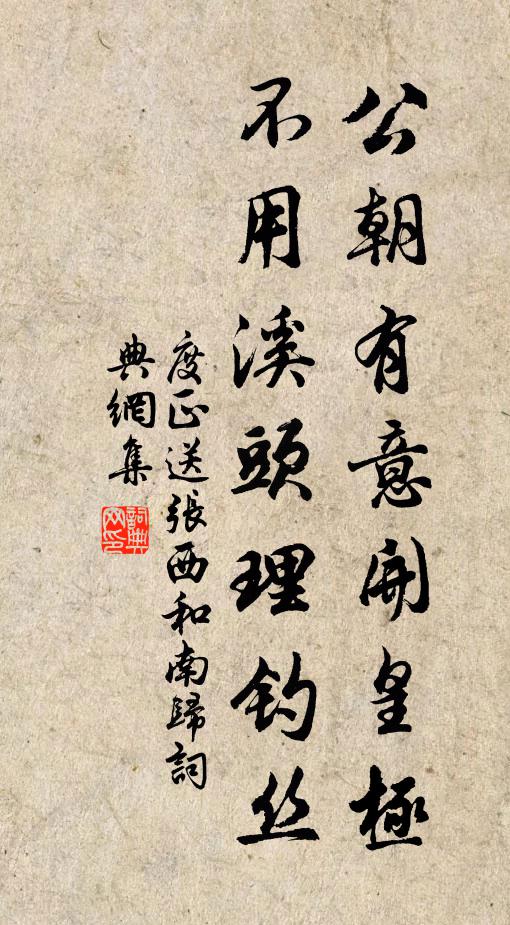 公朝有意開皇極
不用溪頭理釣丝
度正送張西和南歸詞
典網集
詞典网印